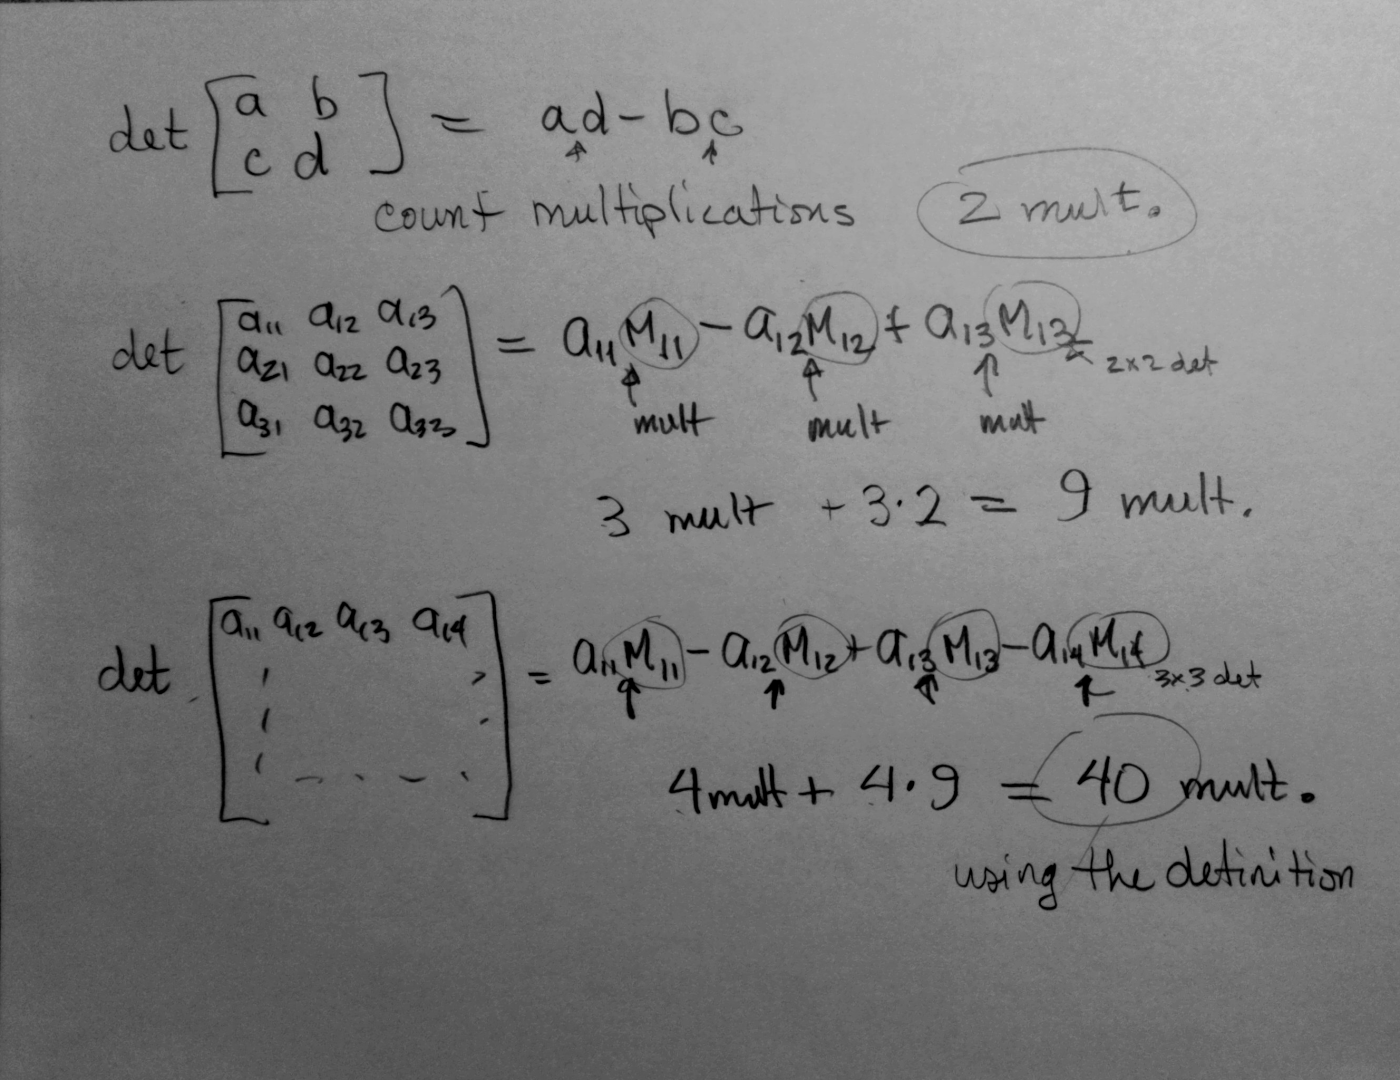 det [a b = ad - bc
c d]
count multiplications 2 mult.
det [a11 a12 a13 = a11 M11 - a12 M12 + a13 M13 2x2 det
a21 a22 a23
a31 a32 a33]
mult mult mult
3 mult + 3·2 = 9 mult.
det [a11 a12 a13 a14] = a11 M11 - a12 M12 + a13 M13 - a14 M14 3x3 det
4 mult + 4·9 = 40 mult.
using the definition